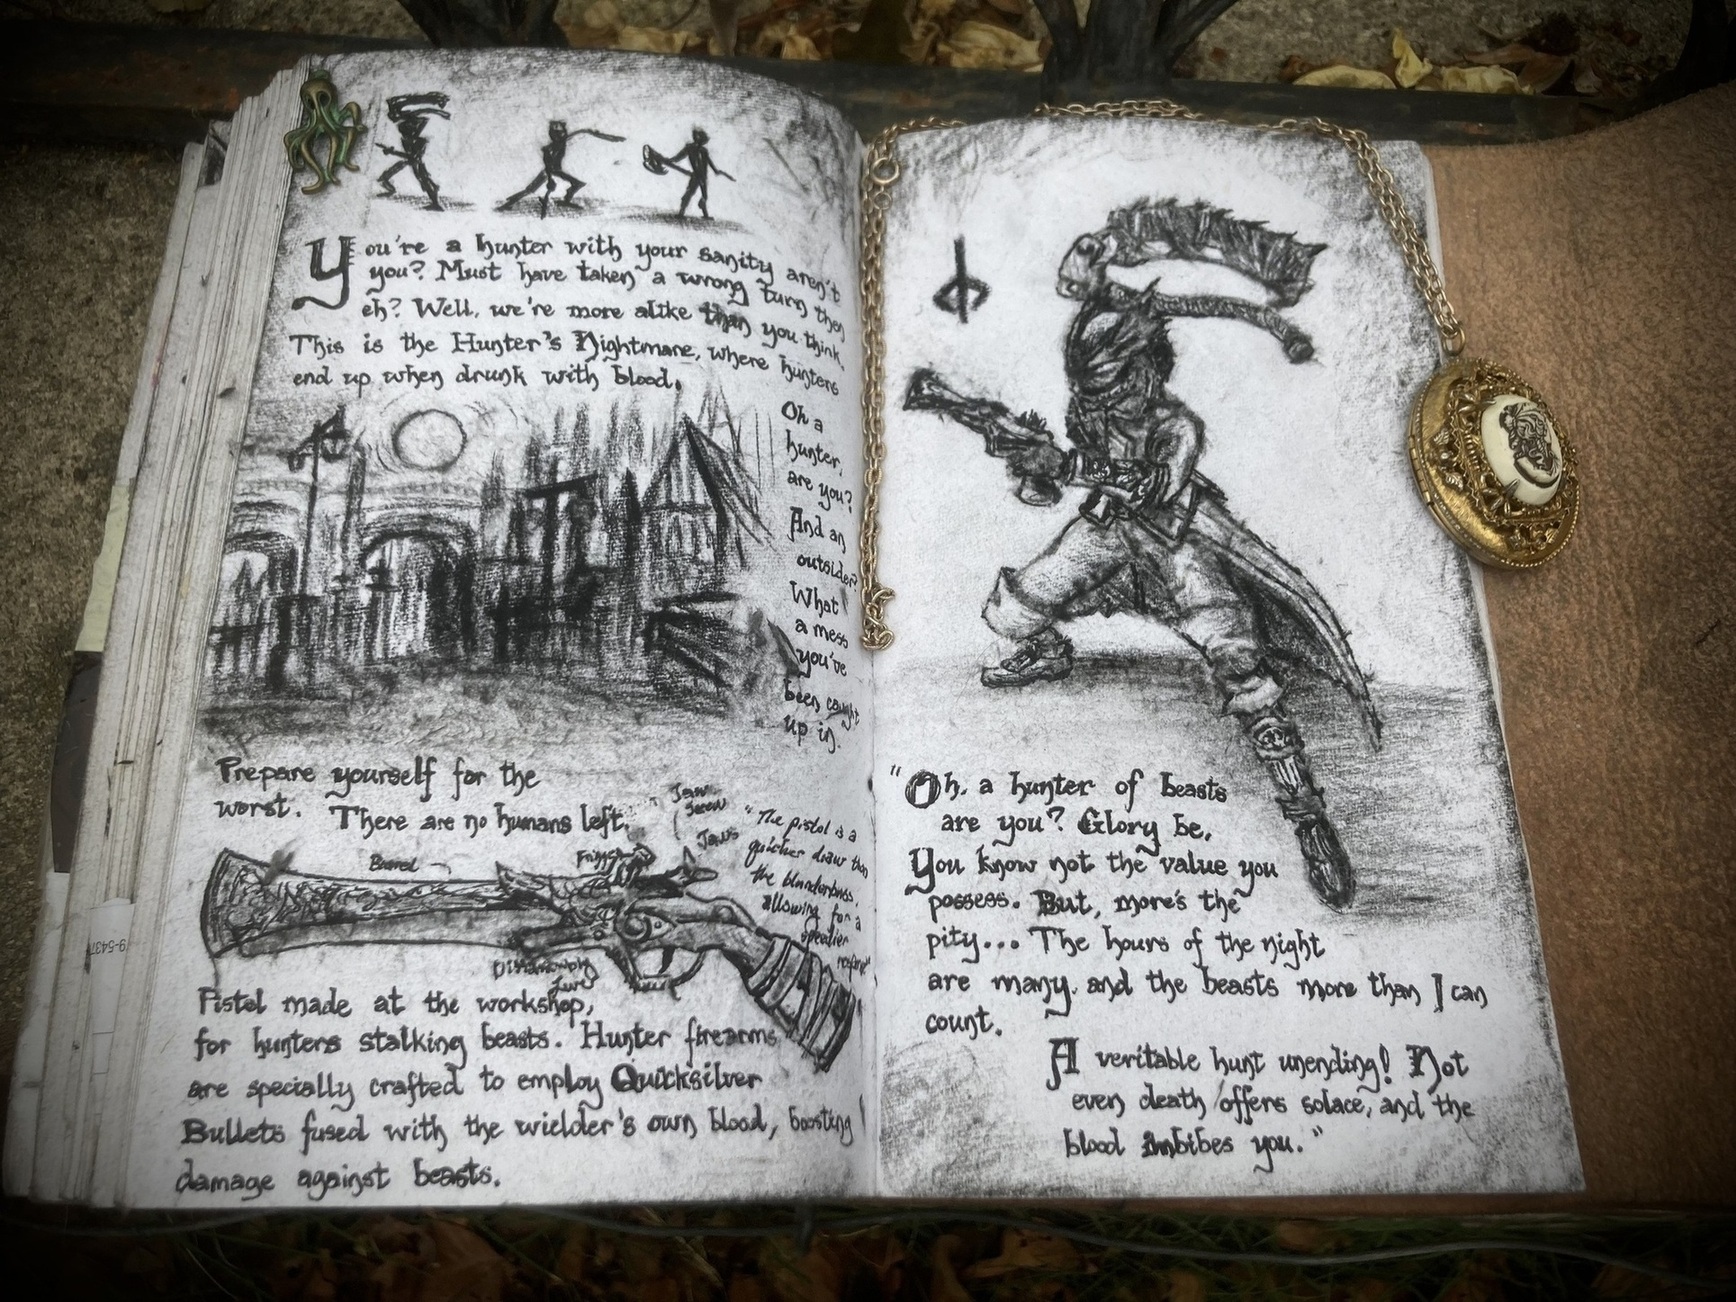 You're a hunter with your sanity aren't
you? Must have taken a wrong turn then
eh? Well, we're more alike than you think.
This is the Hunter's Nightmare, where hunters
end up when drunk with blood.
Oh a
hunter,
are you?
And an
outsider?
What
a mess
you've
been caught
up in.
Prepare yourself for the
worst. There are no humans left.
Jaw
Screw
Jaws
Frizzen
Barrel
"The pistol is a
quicker draw than
the blunderbuss,
allowing for a
speedier
Pistol made at the workshop,
for hunters stalking beasts. Hunter firearms
are specially crafted to employ Quicksilver
Bullets fused with the wielder's own blood, boosting
damage against beasts.
9-5437
"Oh, a hunter of beasts
are you? Glory be.
You know not the value you
possess. But, more's the
pity... The hours of the night
are many, and the beasts more than I can
count.
A veritable hunt unending! Not
even death offers solace, and the
blood imbibes you."